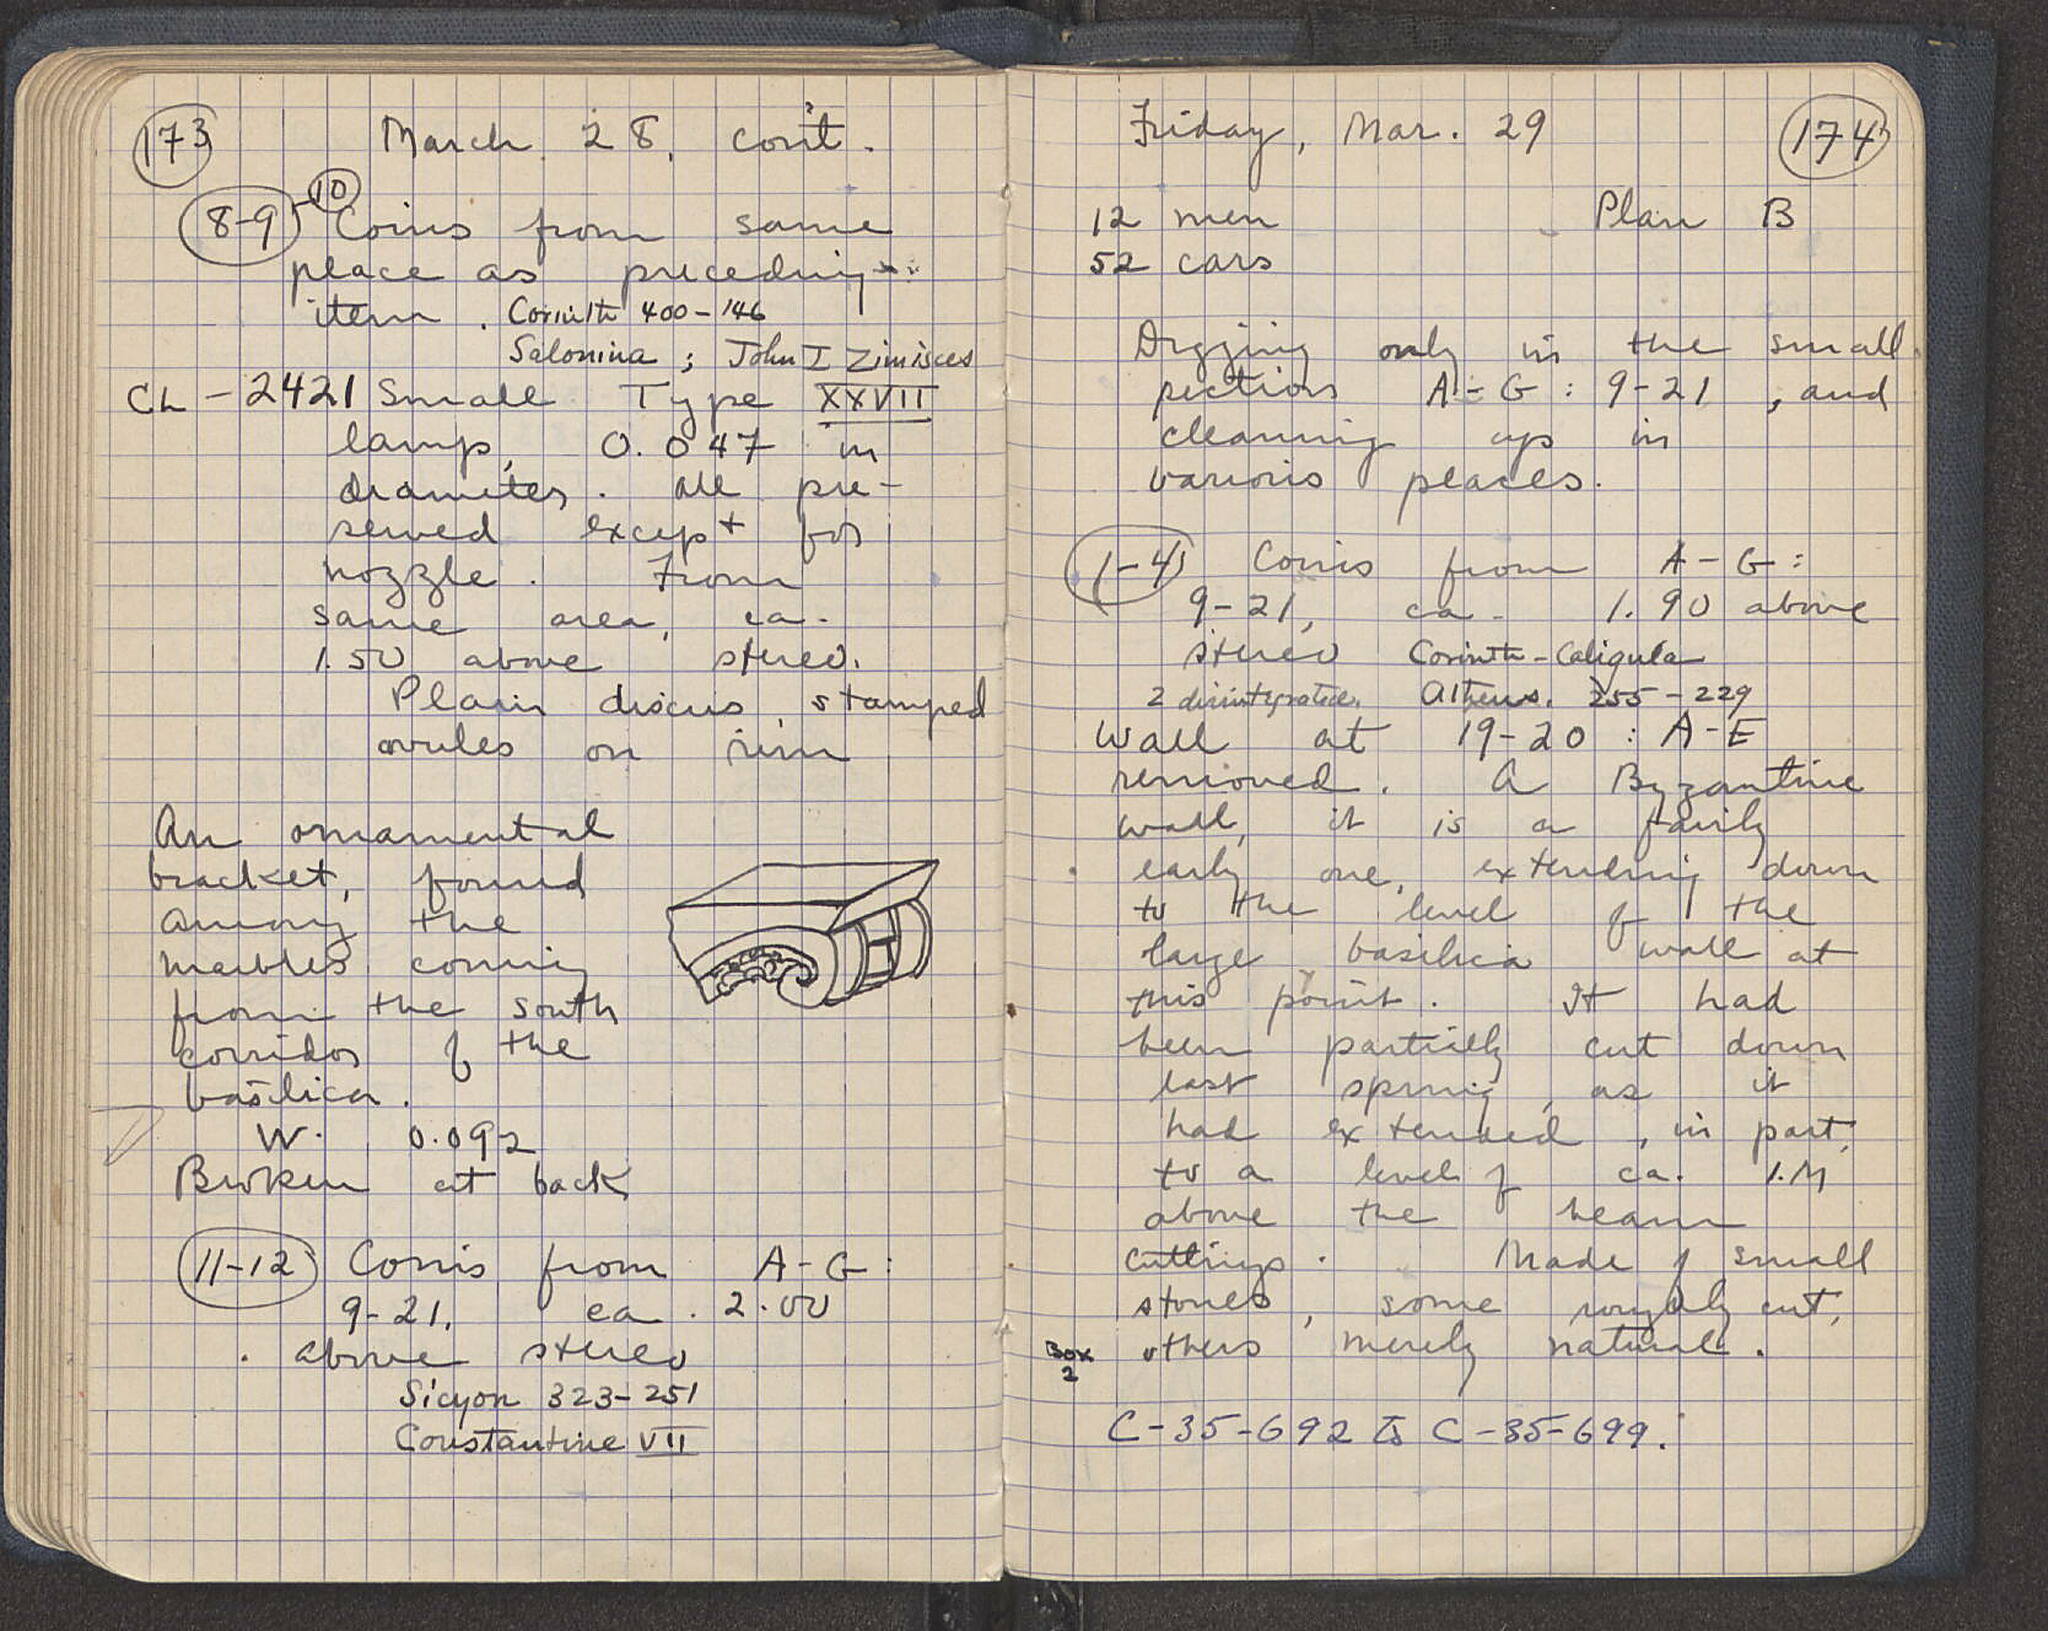 173
March 28, con't.
8-9-10 Coins from same
place as preceding
item. Corinth 400-146
Salonina; John I Zimisces
CL-2421 Small Type XXVII
lamp, 0.047 in
diameter. All pre-
served except for
nozzle. From
same area, ca.
1.50 above stereo.
Plain discus, stamped
ovules on rim
An ornamental
bracket, found
among the
marbles coming
from the south
corridor of the
basilica.
W. 0.092
Broken at back
11-12 Coins from A-G:
9-21, ca. 2.00
above stereo
Sicyon 323-251
Constantine VII
Friday, Mar. 29
174
12 men Plan B
52 cars
Digging only in the small
section A-G: 9-21, and
cleaning up in
various places.
1-4 Coins from A-G:
9-21, ca. 1.90 above
stereo Corinth-Caligula
2 disintegrated. Athens. 255-229
Wall at 19-20: A-E
removed. A Byzantine
wall, it is a fairly
early one, extending down
to the level of the
large basilica wall at
this point. It had
been partially cut down
last spring, as it
had extended, in part,
to a level of ca. 1.M
above the beam
cuttings. Made of small
stones, some roughly cut,
others merely natural.
Box
2
C-35-692 to C-35-699.